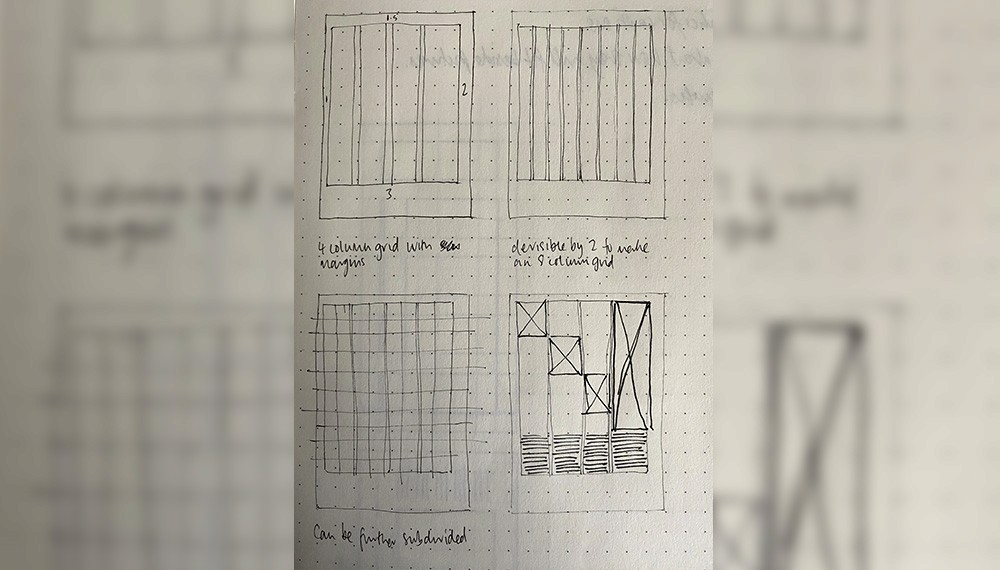 1.5
1
2
3
4 column grid with
margins
devisible by 2 to make
an 8 column grid
Can be further subdivided